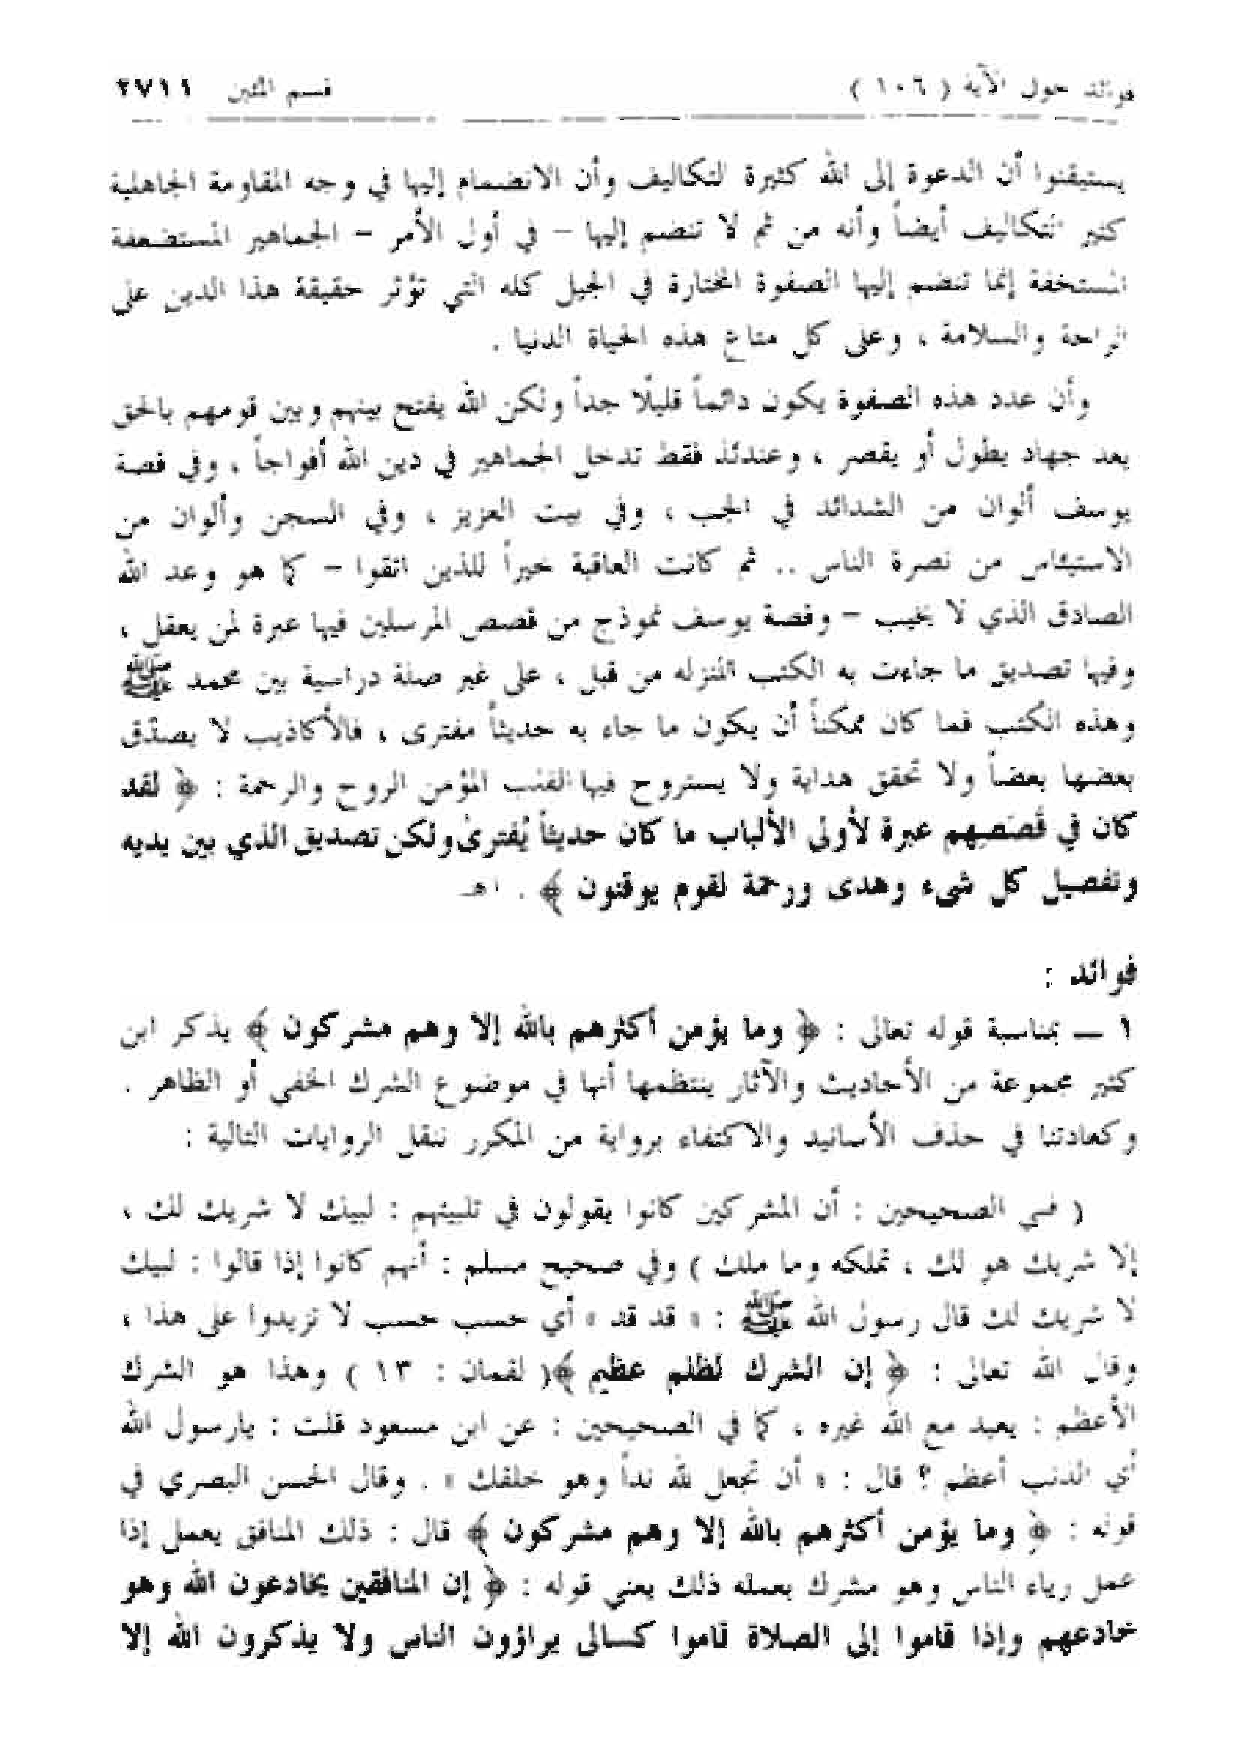 فوائد حول الآية ( ١٠٦ ) قسم المئين ٢٧١١
يستيقنوا أن الدعوة إلى الله كثيرة التكاليف وأن الانضمام إليها في وجه المقاومة الجاهلية
كثير التكاليف أيضاً وأنه من ثم لا تنضم إليها – في أول الأمر – الجماهير المستضعفة
المستخفة إنما تنضم إليها الصفوة المختارة في الجيل كله التي تؤثر حقيقة هذا الدين على
الراحة والسلامة ، وعلى كل متاع هذه الحياة الدنيا .
وأن عدد هذه الصفوة يكون دائماً قليلًا جداً ولكن الله يفتح بينهم وبين قومهم بالحق
بعد جهاد يطول أو يقصر ، وعندئذ فقط تدخل الجماهير في دين الله أفواجاً ، وفي قصة
يوسف ألوان من الشدائد في الجب ، وفي بيت العزيز ، وفي السجن وألوان من
الاستيئاس من نصرة الناس .. ثم كانت العاقبة خيراً للذين اتقوا – كما هو وعد الله
الصادق الذي لا يخيب – وقصة يوسف نموذج من قصص المرسلين فيها عبرة لمن يعقل ،
وفيها تصديق ما جاءت به الكتب المنزله من قبل ، على غير صلة دراسية بين محمد ﷺ
وهذه الكتب فما كان ممكناً أن يكون ما جاء به حديثاً مفترى ، فالأكاذيب لا يصدّق
بعضها بعضاً ولا تحقق هداية ولا يستروح فيها القلب المؤمن الروح والرحمة : ﴿ لقد
كان في قَصَصِهم عبرة لأولى الألباب ما كان حديثاً يُفترىٰ ولكن تصديق الذي بين يديه
وتفصيل كل شيء وهدى ورحمة لقوم يوقنون ﴾ . اهـ
فوائد :
١ – بمناسبة قوله تعالى : ﴿ وما يؤمن أكثرهم بالله إلا وهم مشركون ﴾ يذكر ابن
كثير مجموعة من الأحاديث والآثار ينتظمها أنها في موضوع الشرك الخفي أو الظاهر .
وكعادتنا في حذف الأسانيد والاكتفاء برواية من المكرر ننقل الروايات التالية :
( فـي الصحيحين : أن المشركين كانوا يقولون في تلبيتهم : لبيك لا شريك لك ،
إلا شريك هو لك ، تملكه وما ملك ) وفي صحيح مسلم : أنهم كانوا إذا قالوا : لبيك
لا شريك لك قال رسول الله ﷺ : « قد قد » أي حسب حسب لا تزيدوا على هذا ،
وقال الله تعالى : ﴿ إن الشرك لظلم عظيم ﴾( لقمان : ١٣ ) وهذا هو الشرك
الأعظم : يعبد مع الله غيره ، كما في الصحيحين : عن ابن مسعود قلت : يارسول الله
أي الذنب أعظم ؟ قال : « أن تجعل لله نداً وهو خلقك » . وقال الحسن البصري في
قوله : ﴿ وما يؤمن أكثرهم بالله إلا وهم مشركون ﴾ قال : ذلك المنافق يعمل إذا
عمل رياء الناس وهو مشرك بعمله ذلك يعني قوله : ﴿ إن المنافقين يخادعون الله وهو
خادعهم وإذا قاموا إلى الصلاة قاموا كسالى يراؤون الناس ولا يذكرون الله إلا